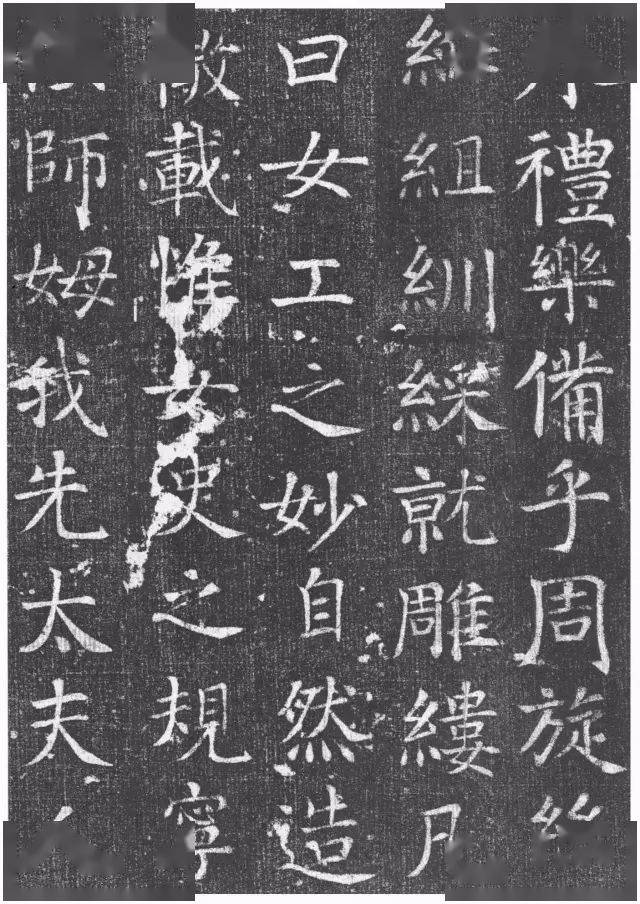 禮樂備乎周旋
組紃綵就雕縷
曰女工之妙自然造
載惟女史之規寧
師姆我先太夫